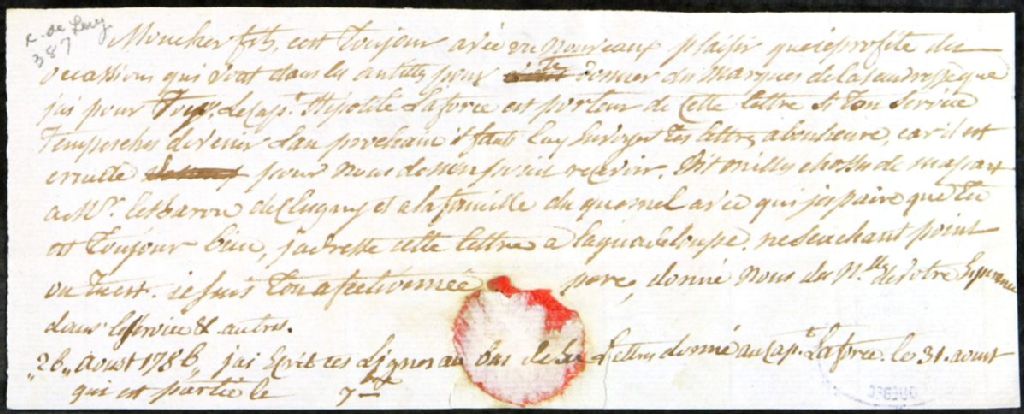 R. de Léry
387
Moncher fils, cest Toujour avéc un nouveaux plaisir queje profite des
occassions qui Sont dans les antilly pour donner des marques de la tendresse que
jai pour Toy. Le Cap.^t Hipolite Laforce est porteur de Cette lettre Si Ton Service
Tempeches de venir Lan prochain il faut luy Envoyer tes lettres abonheure, car il est
ensuite pour nous de les recevoir. Dit milles choses de ma part
a M.^r Le baron de Clugny et a la famille du quesnel avéc qui jespaire que tu
est Toujour bien, j'adresse cette lettre a la guadeloupe. ne Scachant point
ou tu est. je suis Ton afectionnée pere, donné nous des N.^lles de Votre Esperance
dans leservice & autres.
"26" Aoust 1786" jai Ecrit ces Lignes au bas de la Lettre donné au Cap.^t Laforce. le 31. aoust
qui est partie le 7
QUEBEC